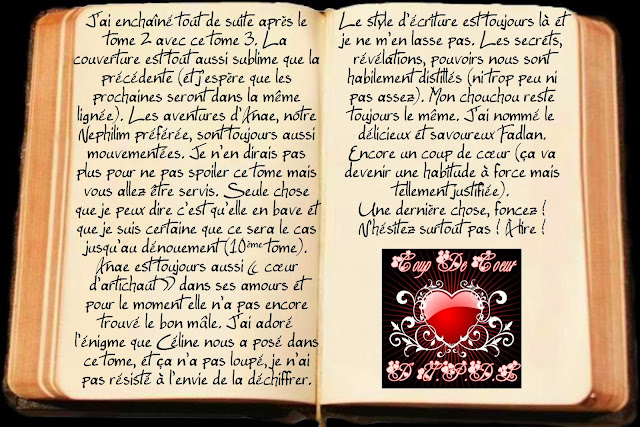 J'ai enchaîné tout de suite après le
tome 2 avec ce tome 3. La
couverture est tout aussi sublime que la
précédente (et j'espère que les
prochaines seront dans la même
lignée). Les aventures d'Anae, notre
Nephilim préférée, sont toujours aussi
mouvementées. Je n'en dirais pas
plus pour ne pas spoiler ce tome mais
vous allez être servis. Seule chose
que je peux dire c'est qu'elle en bave et
que je suis certaine que ce sera le cas
jusqu'au dénouement (10ème tome).
Anae est toujours aussi « cœur
d'artichaut » dans ses amours et
pour le moment elle n'a pas encore
trouvé le bon mâle. J'ai adoré
l'énigme que Céline nous a posé dans
ce tome, et ça n'a pas loupé, je n'ai
pas résisté à l'envie de la déchiffrer.
Le style d'écriture est toujours là et
je ne m'en lasse pas. Les secrets,
révélations, pouvoirs nous sont
habilement distillés (ni trop peu ni
pas assez). Mon chouchou reste
toujours le même. J'ai nommé le
délicieux et savoureux Fadlan.
Encore un coup de cœur (ça va
devenir une habitude à force mais
tellement justifiée).
Une dernière chose, foncez !
N'hésitez surtout pas ! A lire !
Coup De Coeur